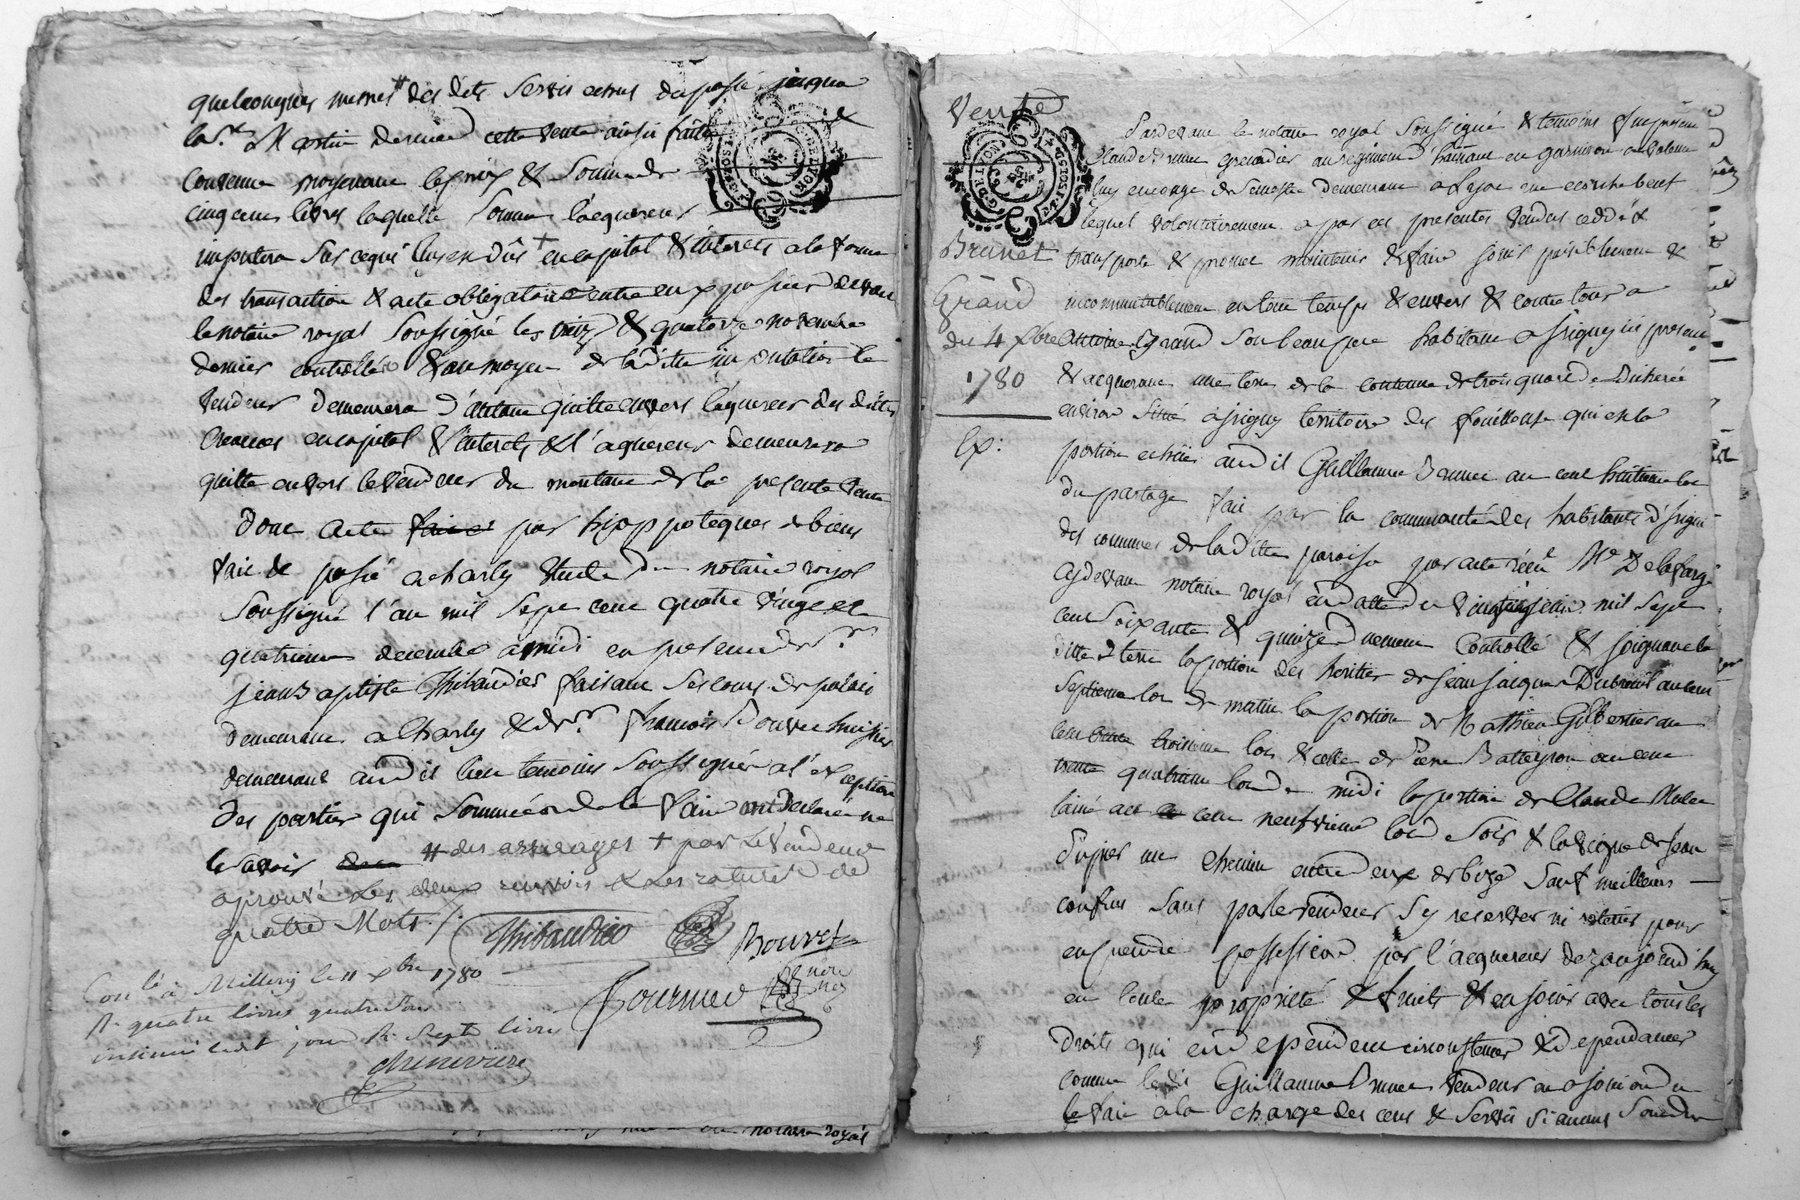 quelconques mesmes # des dits servis echus du passé jusqua
la St Martin derniere cette vente ainsi faite
convenue moyenant le prix & somme de
cinq cens livres laquelle somme l'acquereur
imputera sur ce qui luy est dûs + en capital & interets a la forme
des transaction & acte obligatoire entre eux passées devant
le notaire royal soussigné les & quatorze novembre
dernier controllés & au moyen de la ditte imputation le
vendeur demeurera d'autant quitte envers l'aquereur des dittes
creances en capital & interets & l'aquereur demeurera
quitte envers le vendeur du montant de la presente vente
Dont acte faire par hyppoteques de biens
fait & passé a charly etude du notaire royal
soussigné l'an mil sept cent quatre vingt et le
quatrieme decembre a midi en presence de sr
jean Baptiste Thibaudier faisant ses cours de palais
demeurant a Charly & de sr françois Bouvet huissier
demeurant audit lieu temoins soussignés a l'exception
des parties qui sommées de le faire ont declaré ne
le savoir # des arrerages + par le vendeur
aprouvé les deux renvois & les ratures de
quatre Mots /.
Thibaudier Bouvet
Fournier
Conlé à Millery le 11 xbre 1780
R. quatre livres quatre sous
insinué ledt jour R. sept livres
chenevrier
notaire royal
Vente
Brunet
Grand
du 4 xbre
1780
Ex:
Pardevant le notaire royal soussigné & temoins fut présent
Claude Brunet grenadier au regiment d'hainaut en garnison
luy en congé de semestre demeurant a Lyon rue ecorchebeuf
lequel volontairement a par ces presentes vendus ceddé &
transporté & promet maintenir & faire jouir paisiblement &
incommutablement en tout temps & envers & contre tous a
antoine Grand son beau pere habitant a jrigny ici present
& acquerant une terre de la contenue de trois quart de Bicherée
environ situé a jrigny territoire des fouilleuse qui est la
portion echüe audit Guillaume Brunet au cent huitieme lot
du partage fait par la communauté des habitants d'jrigni
des communes de la ditte paroisse par acte reçu Me Delafarge
cydevant notaire royal en datte du mil sept
cent soixante & quinze duement controllé & joignant la
ditte terre la portion des heritiers de jean jacques Dubreuil au cent
septieme lot de matin la portion de Mathieu Gilbertier au
cent troisieme lot & celle de Pierre Batteyron au cent
quatrieme lot de midi la portion de Claude Mulet
l'ainé au cent neufvieme lot de soir & la vigne de jean
Dupier un chemin entre deux de bize sauf meilleurs
confins sans par le vendeur s'y reserver ni retenir pour
en prendre possession par l'acquereur dez aujourd'huy
en toute proprieté & fruits & en jouir avec tous les
droits qui en dependent circonstances & dependances
comme ledit Guillaume Brunet vendeur en a joui ou du
le faire a la charge des cens & servis si aucuns sont du